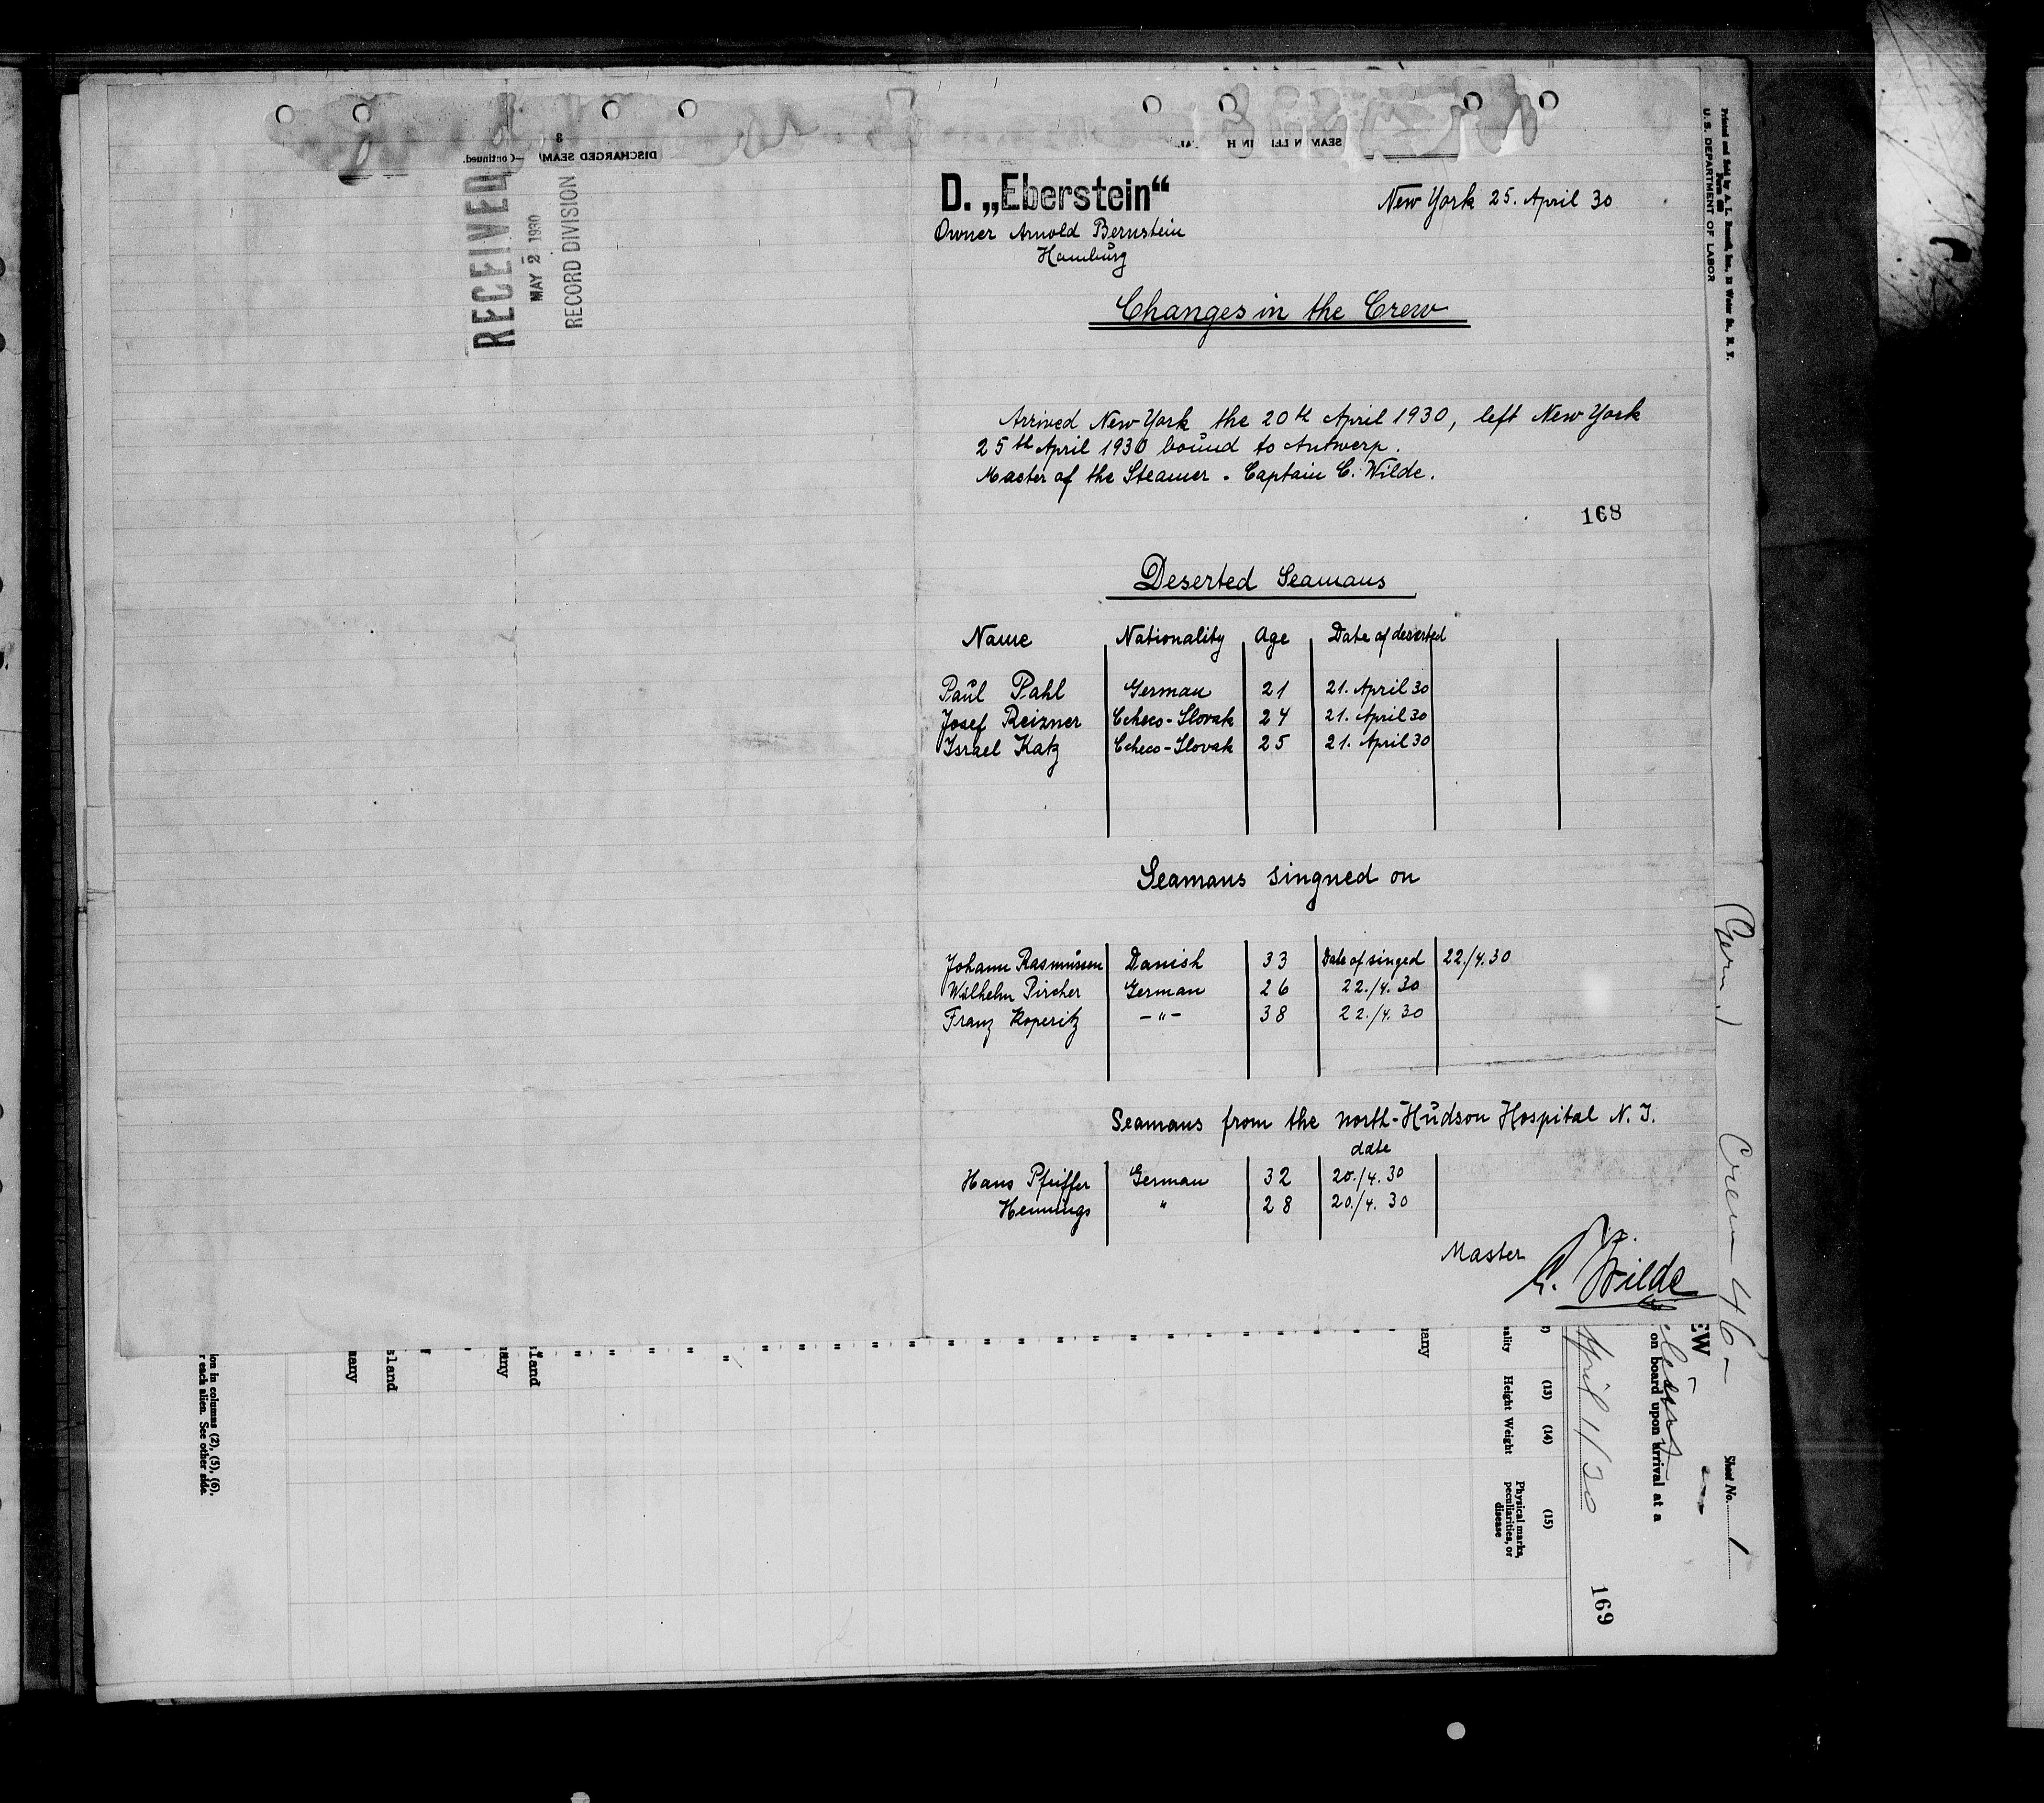 DISCHARGED SEAM
—Continued.
8
RECEIVED
MAY 2 1930
RECORD DIVISION
D. „Eberstein“
New York 25. April 30
Owner Arnold Bernstein
Hamburg
Changes in the Crew
Arrived New York the 20th April 1930, left New York
25th April 1930 bound to Antwerp.
Master of the Steamer. Captain C. Wilde.
168
Deserted Seamans
Name Nationality Age Date of deserted
Paul Pahl German 21 21. April 30
Josef Reizner Checo-Slovak 24 21. April 30
Israel Katz Checo-Slovak 25 21. April 30
Seamans singned on
Johann Rasmussen Danish 33 Date of singed 22./4.30
Wilhelm Pircher German 26 22./4.30
Franz Koperitz -"- 38 22./4.30
Seamans from the north-Hudson Hospital N. J.
date
Hans Pfeiffer German 32 20./4.30
Hennings " 28 20./4.30
Master
C. Wilde
U. S. DEPARTMENT OF LABOR
(Germ.) Crew 46-
Sheet No. 1
EW
on board upon arrival at a
April 1/30
169
(13) (14) (15)
Height Weight Physical marks,
peculiarities, or
disease
ion in columns (2), (5), (6),
r each alien. See other side.